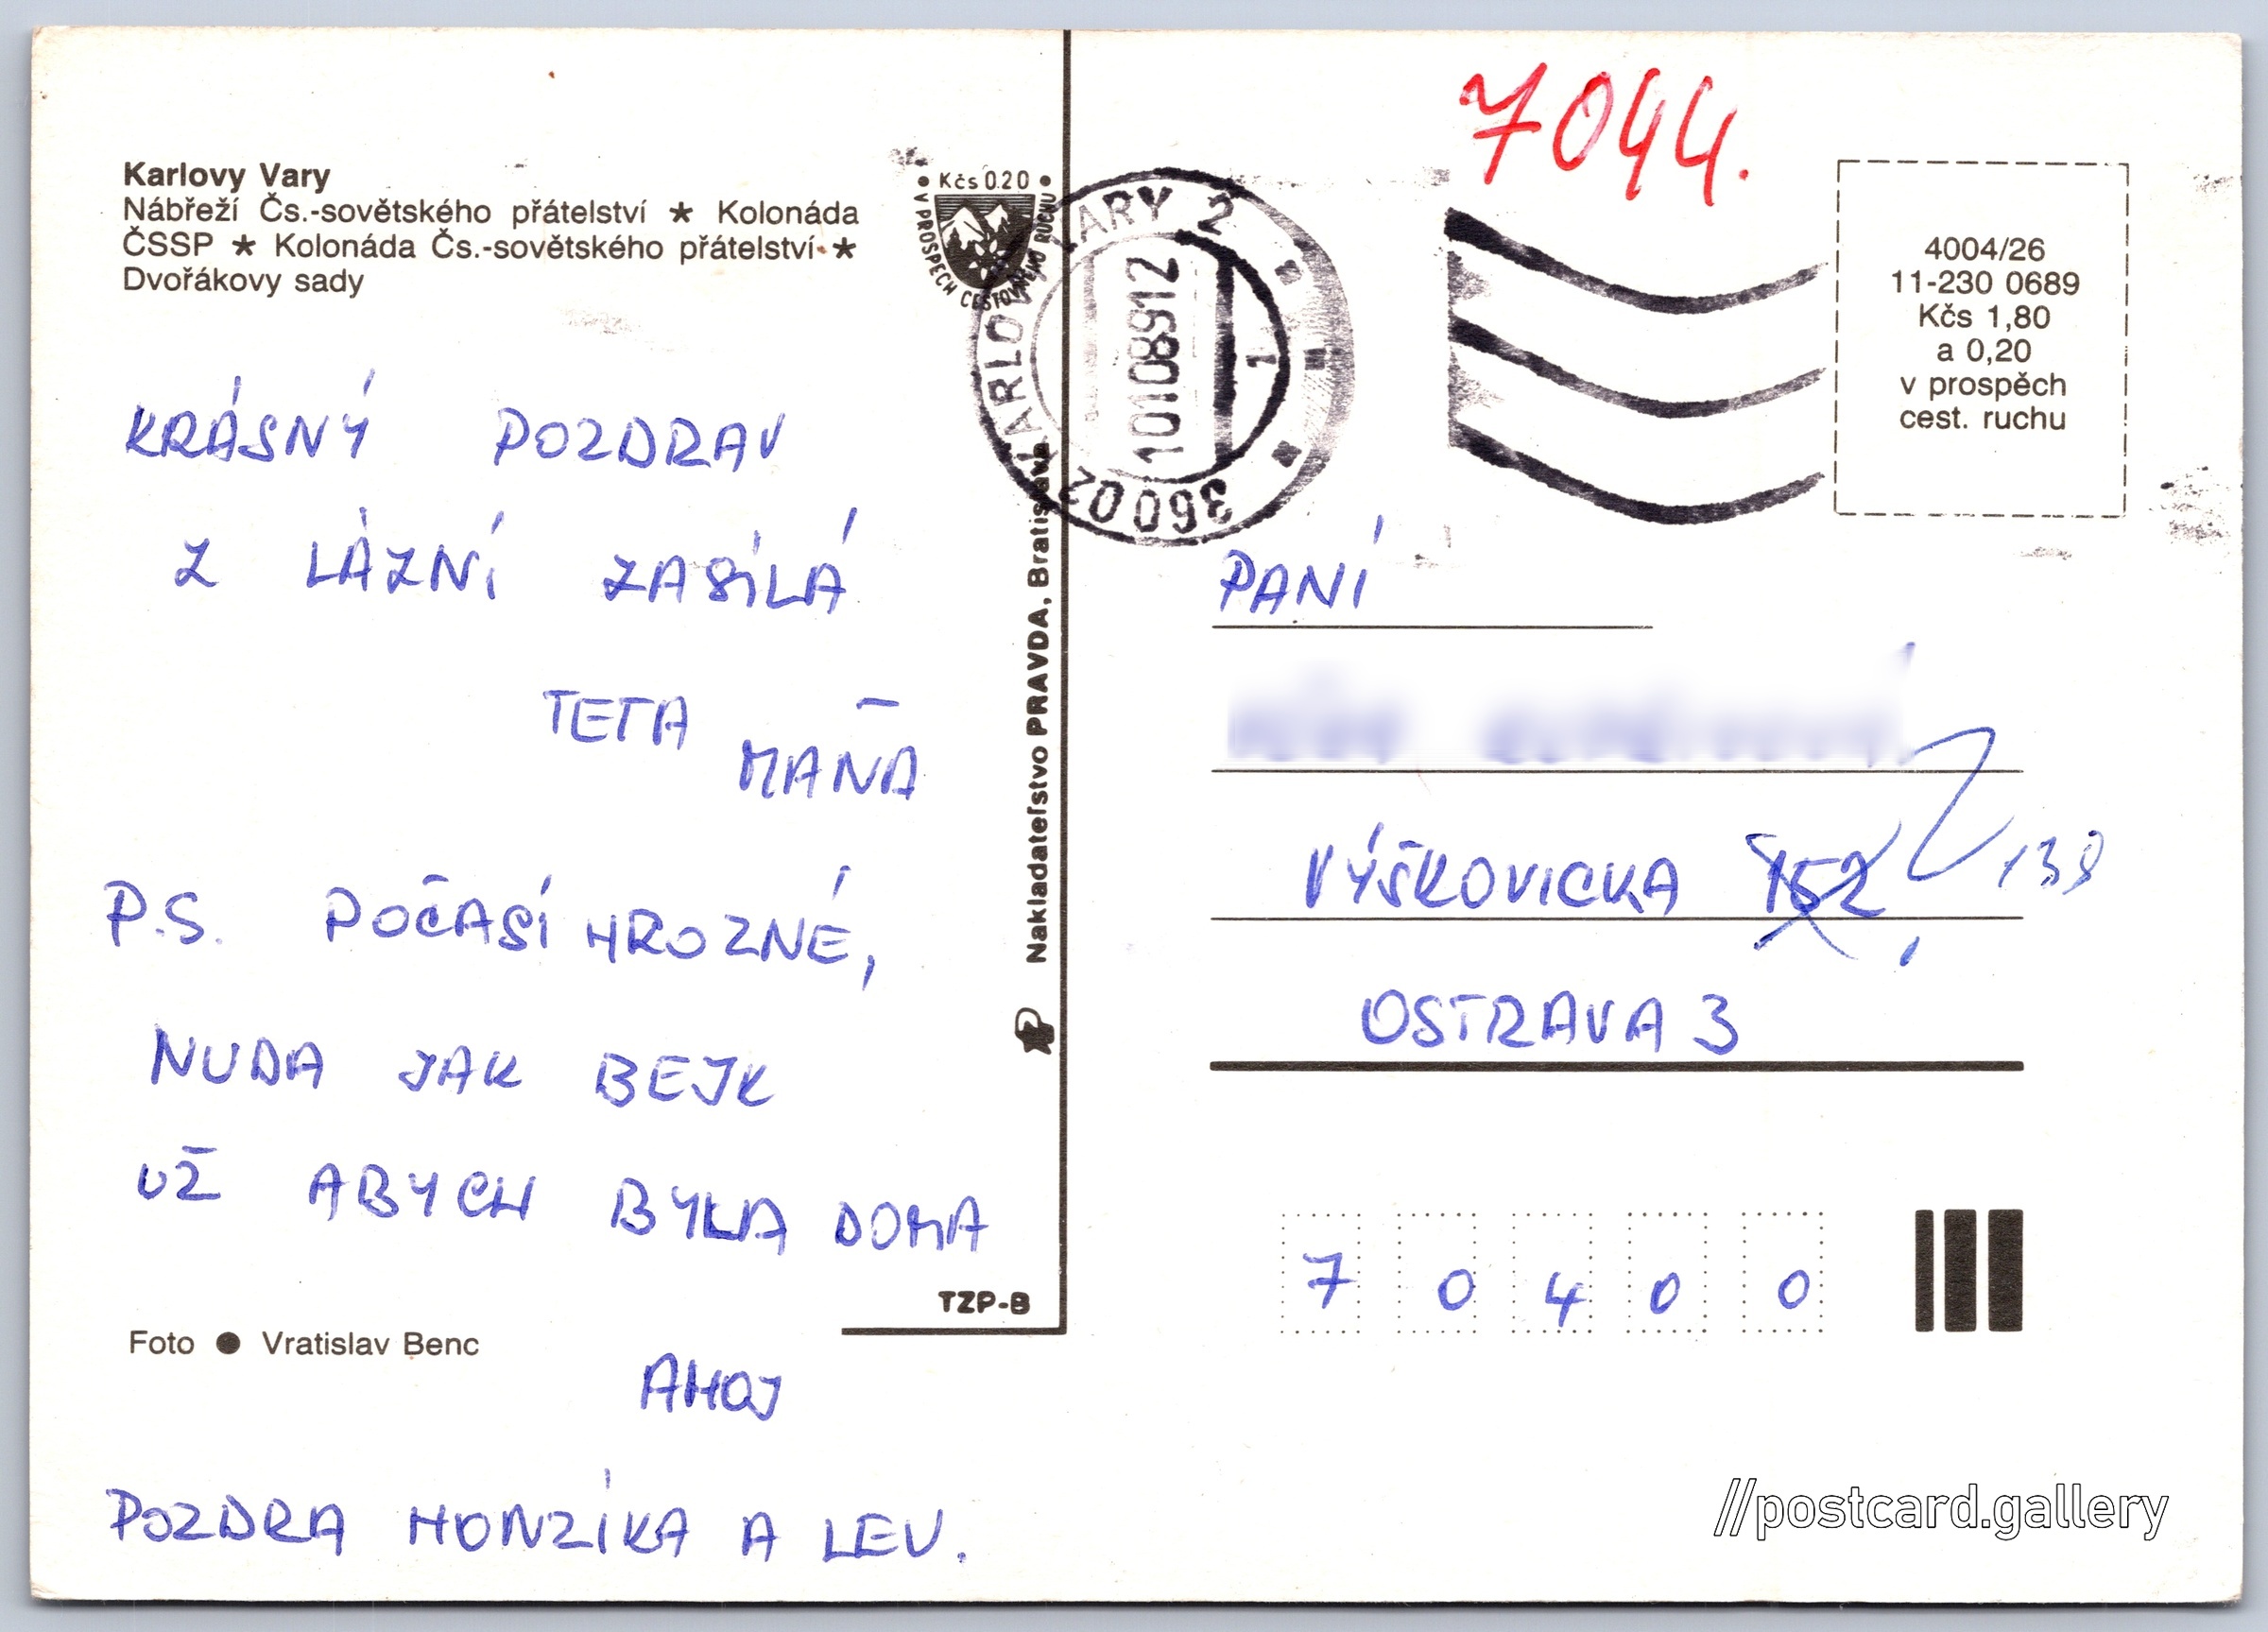 Karlovy Vary
Nábřeží Čs.-sovětského přátelství ★ Kolonáda
ČSSP ★ Kolonáda Čs.-sovětského přátelství ★
Dvořákovy sady
• Kčs 0.20 •
V PROSPĚCH CESTOVNÍHO RUCHU
KRÁSNÝ POZDRAV
Z LÁZNÍ ZASÍLÁ
TETA MAŇA
P.S. POČASÍ HROZNÉ,
NUDA JAK BEJK
UŽ ABYCH BYLA DOMA
AHOJ
POZDRA HONZÍKA A LEV.
Foto ● Vratislav Benc
TZP-B
Nakladateľstvo PRAVDA, Bratislava
KARLOVY VARY 2
10108912
1
36002
7044.
4004/26
11-230 0689
Kčs 1,80
a 0,20
v prospěch
cest. ruchu
PANÍ
VÝŠKOVICKA 152 139
OSTRAVA 3
7 0 4 0 0
//postcard.gallery